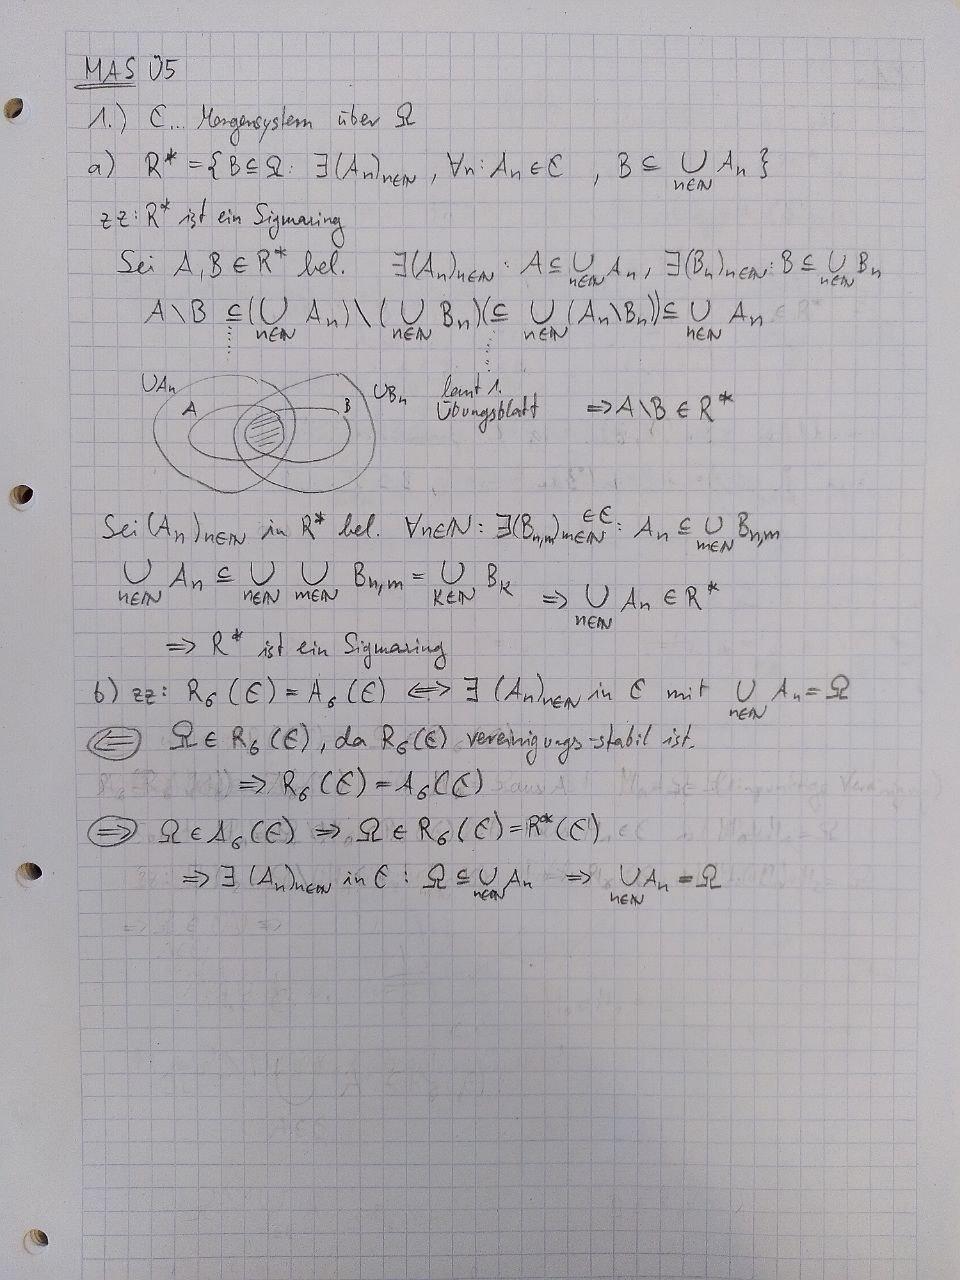 MAS Ü5
1.) C... Mengensystem über Ω
a) R* = {B ⊆ Ω: ∃(Aₙ)ₙ∈ℕ, ∀n: Aₙ ∈ C, B ⊆ ⋃ₙ∈ℕ Aₙ}
zz: R* ist ein Sigmaring
Sei A, B ∈ R* bel. ∃(Aₙ)ₙ∈ℕ: A ⊆ ⋃ₙ∈ℕ Aₙ, ∃(Bₙ)ₙ∈ℕ: B ⊆ ⋃ₙ∈ℕ Bₙ
A\B ⊆ (⋃ₙ∈ℕ Aₙ) \ (⋃ₙ∈ℕ Bₙ) (⊆ ⋃ₙ∈ℕ (Aₙ\Bₙ)) ⊆ ⋃ₙ∈ℕ Aₙ
⋃Aₙ A B ⋃Bₙ laut 1.
Übungsblatt ⇒ A\B ∈ R*
Sei (Aₙ)ₙ∈ℕ in R* bel. ∀n∈ℕ: ∃(Bₙ,ₘ)ₘ∈ℕ ∈ C: Aₙ ⊆ ⋃ₘ∈ℕ Bₙ,ₘ
⋃ₙ∈ℕ Aₙ ⊆ ⋃ₙ∈ℕ ⋃ₘ∈ℕ Bₙ,ₘ = ⋃ₖ∈ℕ Bₖ ⇒ ⋃ₙ∈ℕ Aₙ ∈ R*
⇒ R* ist ein Sigmaring
b) zz: R₆(C) = A₆(C) ⇔ ∃ (Aₙ)ₙ∈ℕ in C mit ⋃ₙ∈ℕ Aₙ = Ω
⇐ Ω ∈ R₆(C), da R₆(C) vereinigungs-stabil ist.
⇒ R₆(C) = A₆(C)
⇒ Ω ∈ A₆(C) ⇒ Ω ∈ R₆(C) = R*(C)
⇒ ∃ (Aₙ)ₙ∈ℕ in C: Ω ⊆ ⋃ₙ∈ℕ Aₙ ⇒ ⋃ₙ∈ℕ Aₙ = Ω